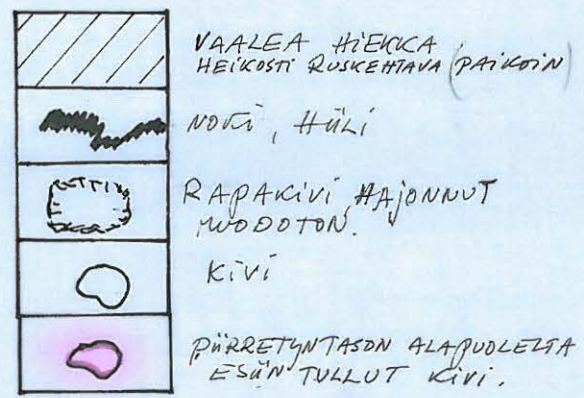 VAALEA HIEKKA
HEIKOSTI RUSKEHTAVA (PAIKOIN)
NOKI, HIILI
RAPAKIVI, HAJONNUT
MUODOTON.
KIVI
PIIRRETYNTASON ALAPUOLELTA
ESIIN TULLUT KIVI.